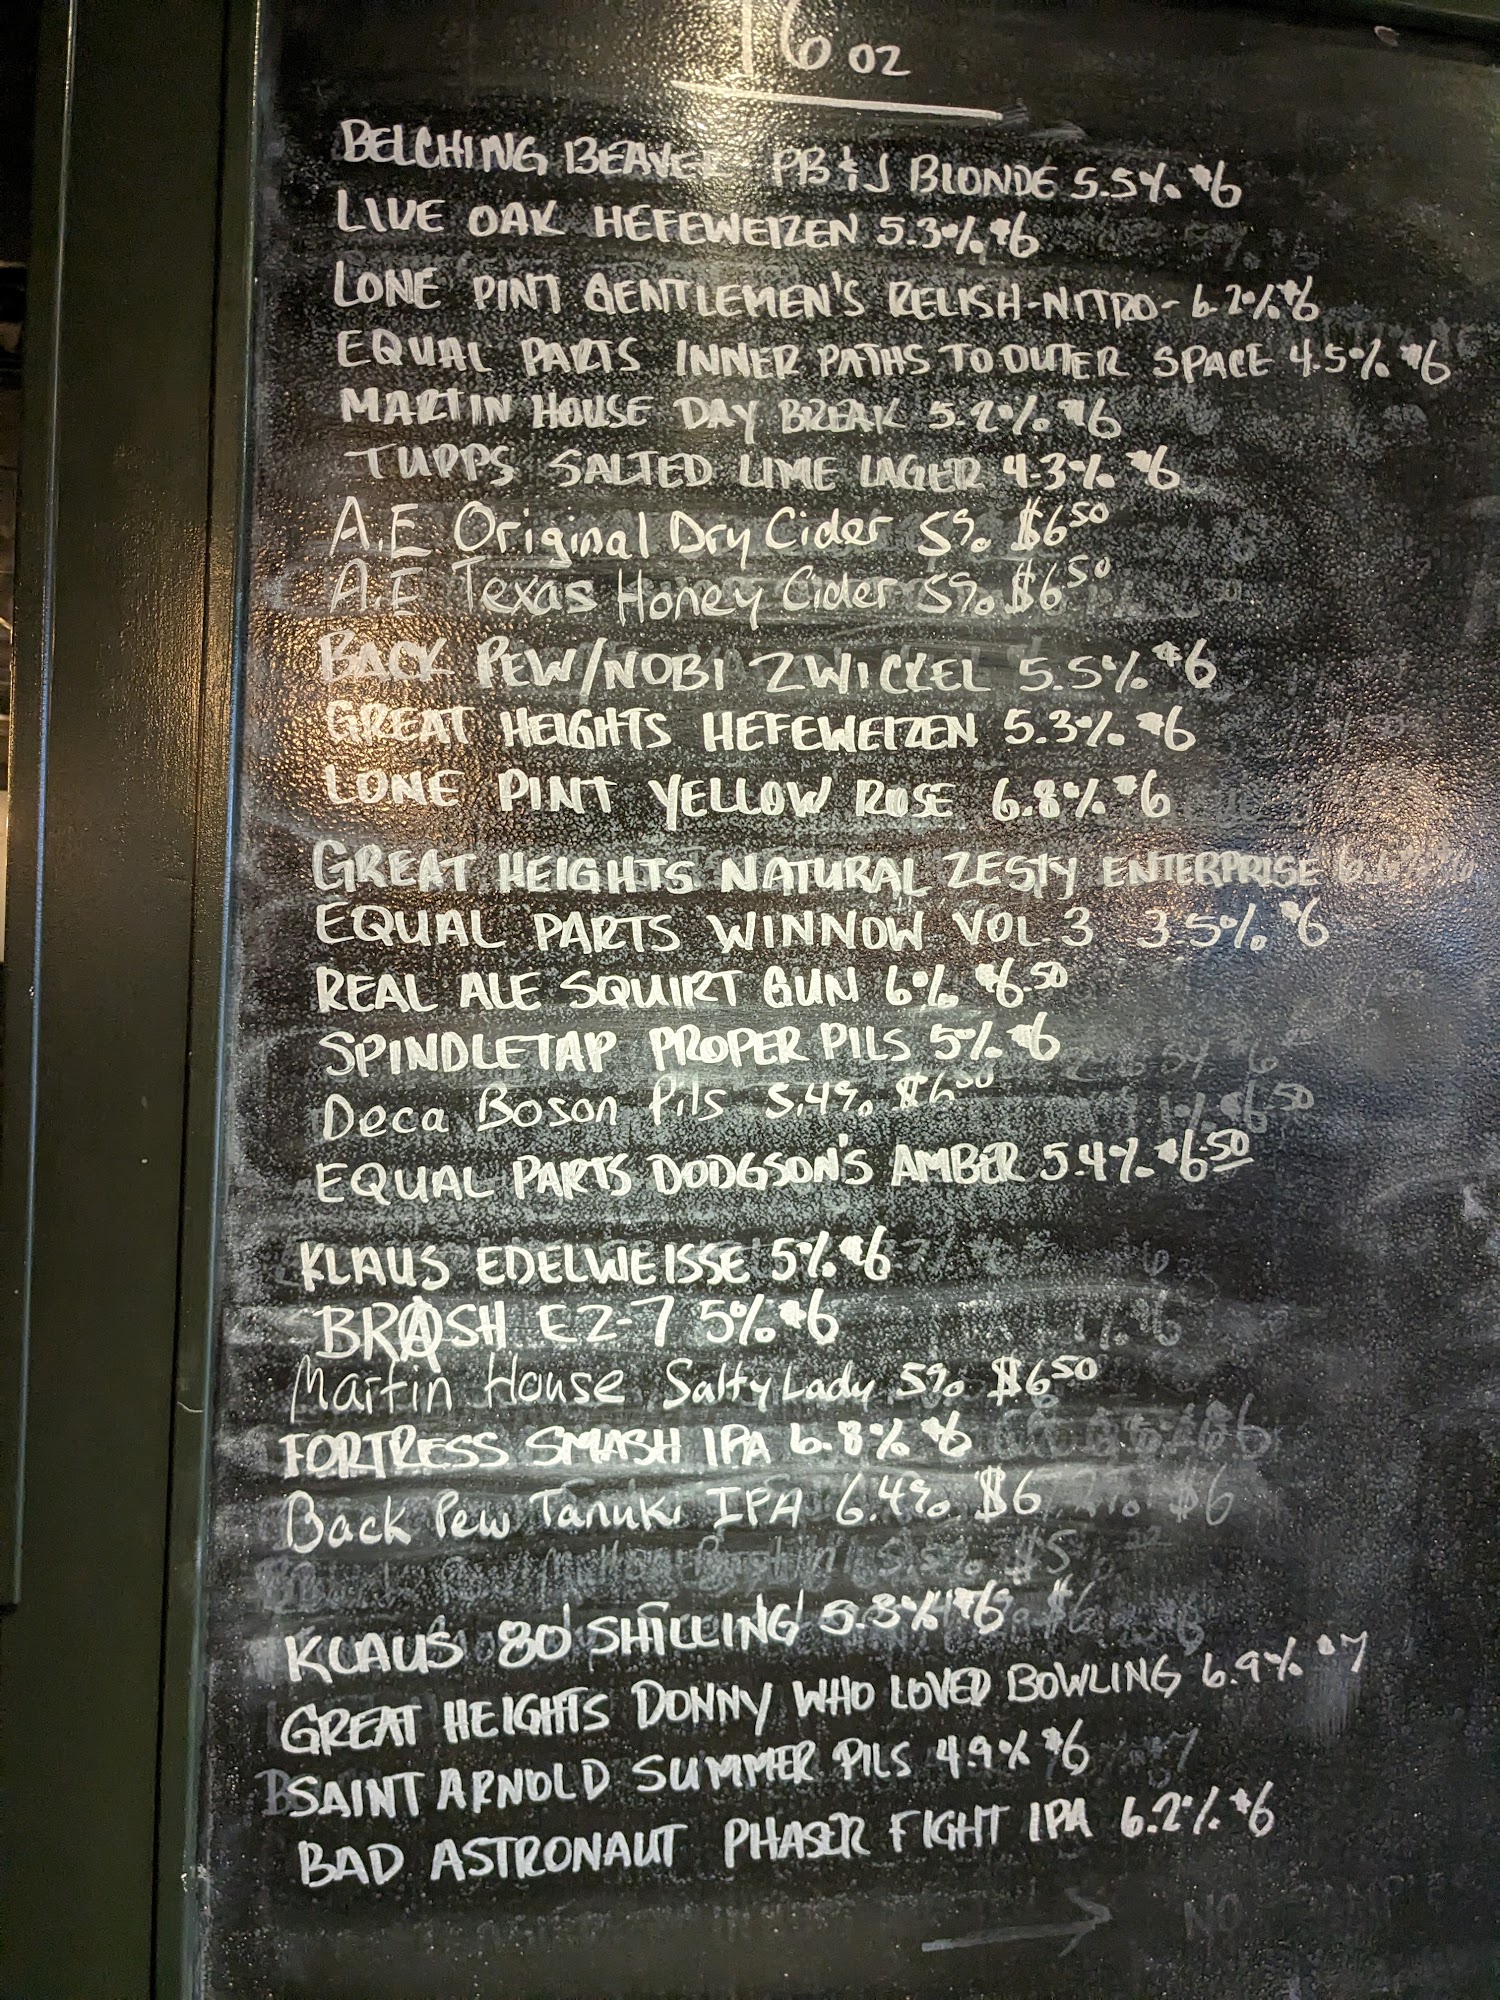 16 OZ
BELCHING BEAVER PB&J BLONDE 5.5% $6
LIVE OAK HEFEWEIZEN 5.3% $6
LONE PINT GENTLEMEN'S RELISH-NITRO- 6.2% $6
EQUAL PARTS INNER PATHS TO OUTER SPACE 4.5% $6
MARTIN HOUSE DAY BREAK 5.2% $6
TUPPS SALTED LIME LAGER 4.3% $6
A.E Original Dry Cider 5% $6.50
A.E Texas Honey Cider 5% $6.50
BACK PEW/NOBI ZWICKEL 5.5% $6
GREAT HEIGHTS HEFEWEIZEN 5.3% $6
LONE PINT YELLOW ROSE 6.8% $6
GREAT HEIGHTS NATURAL ZESTY ENTERPRISE
EQUAL PARTS WINNOW VOL 3 3.5% $6
REAL ALE SQUIRT GUN 6% $6.50
SPINDLETAP PROPER PILS 5% $6
Deca Boson Pils 5.4% $6
EQUAL PARTS DODGSON'S AMBER 5.4% $6.50
KLAUS EDELWEISSE 5% $6
BRASH EZ-7 5% $6
Martin House Salty Lady 5% $6.50
FORTRESS SMASH IPA 6.8% $6
Back Pew Tanuki IPA 6.4% $6
KLAUS 80 SHILLING 5.3% $6
GREAT HEIGHTS DONNY WHO LOVED BOWLING 6.9% $7
SAINT ARNOLD SUMMER PILS 4.9% $6
BAD ASTRONAUT PHASER FIGHT IPA 6.2% $6
NO